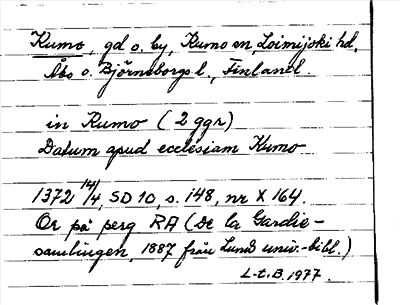 Kumo, gd o. by, Kumo m Loimijoki hd,
Åbo o. Björneborgs l., Finland.
in Kumo (2 ggr)
Datum apud ecclesiam Kumo
1372 14/4, SD 10, s. 148, nr X 164.
Or på perg RA (De la Gardie-
samlingen, 1887 från Lund univ.-bibl.)
L-t.B. 1977.